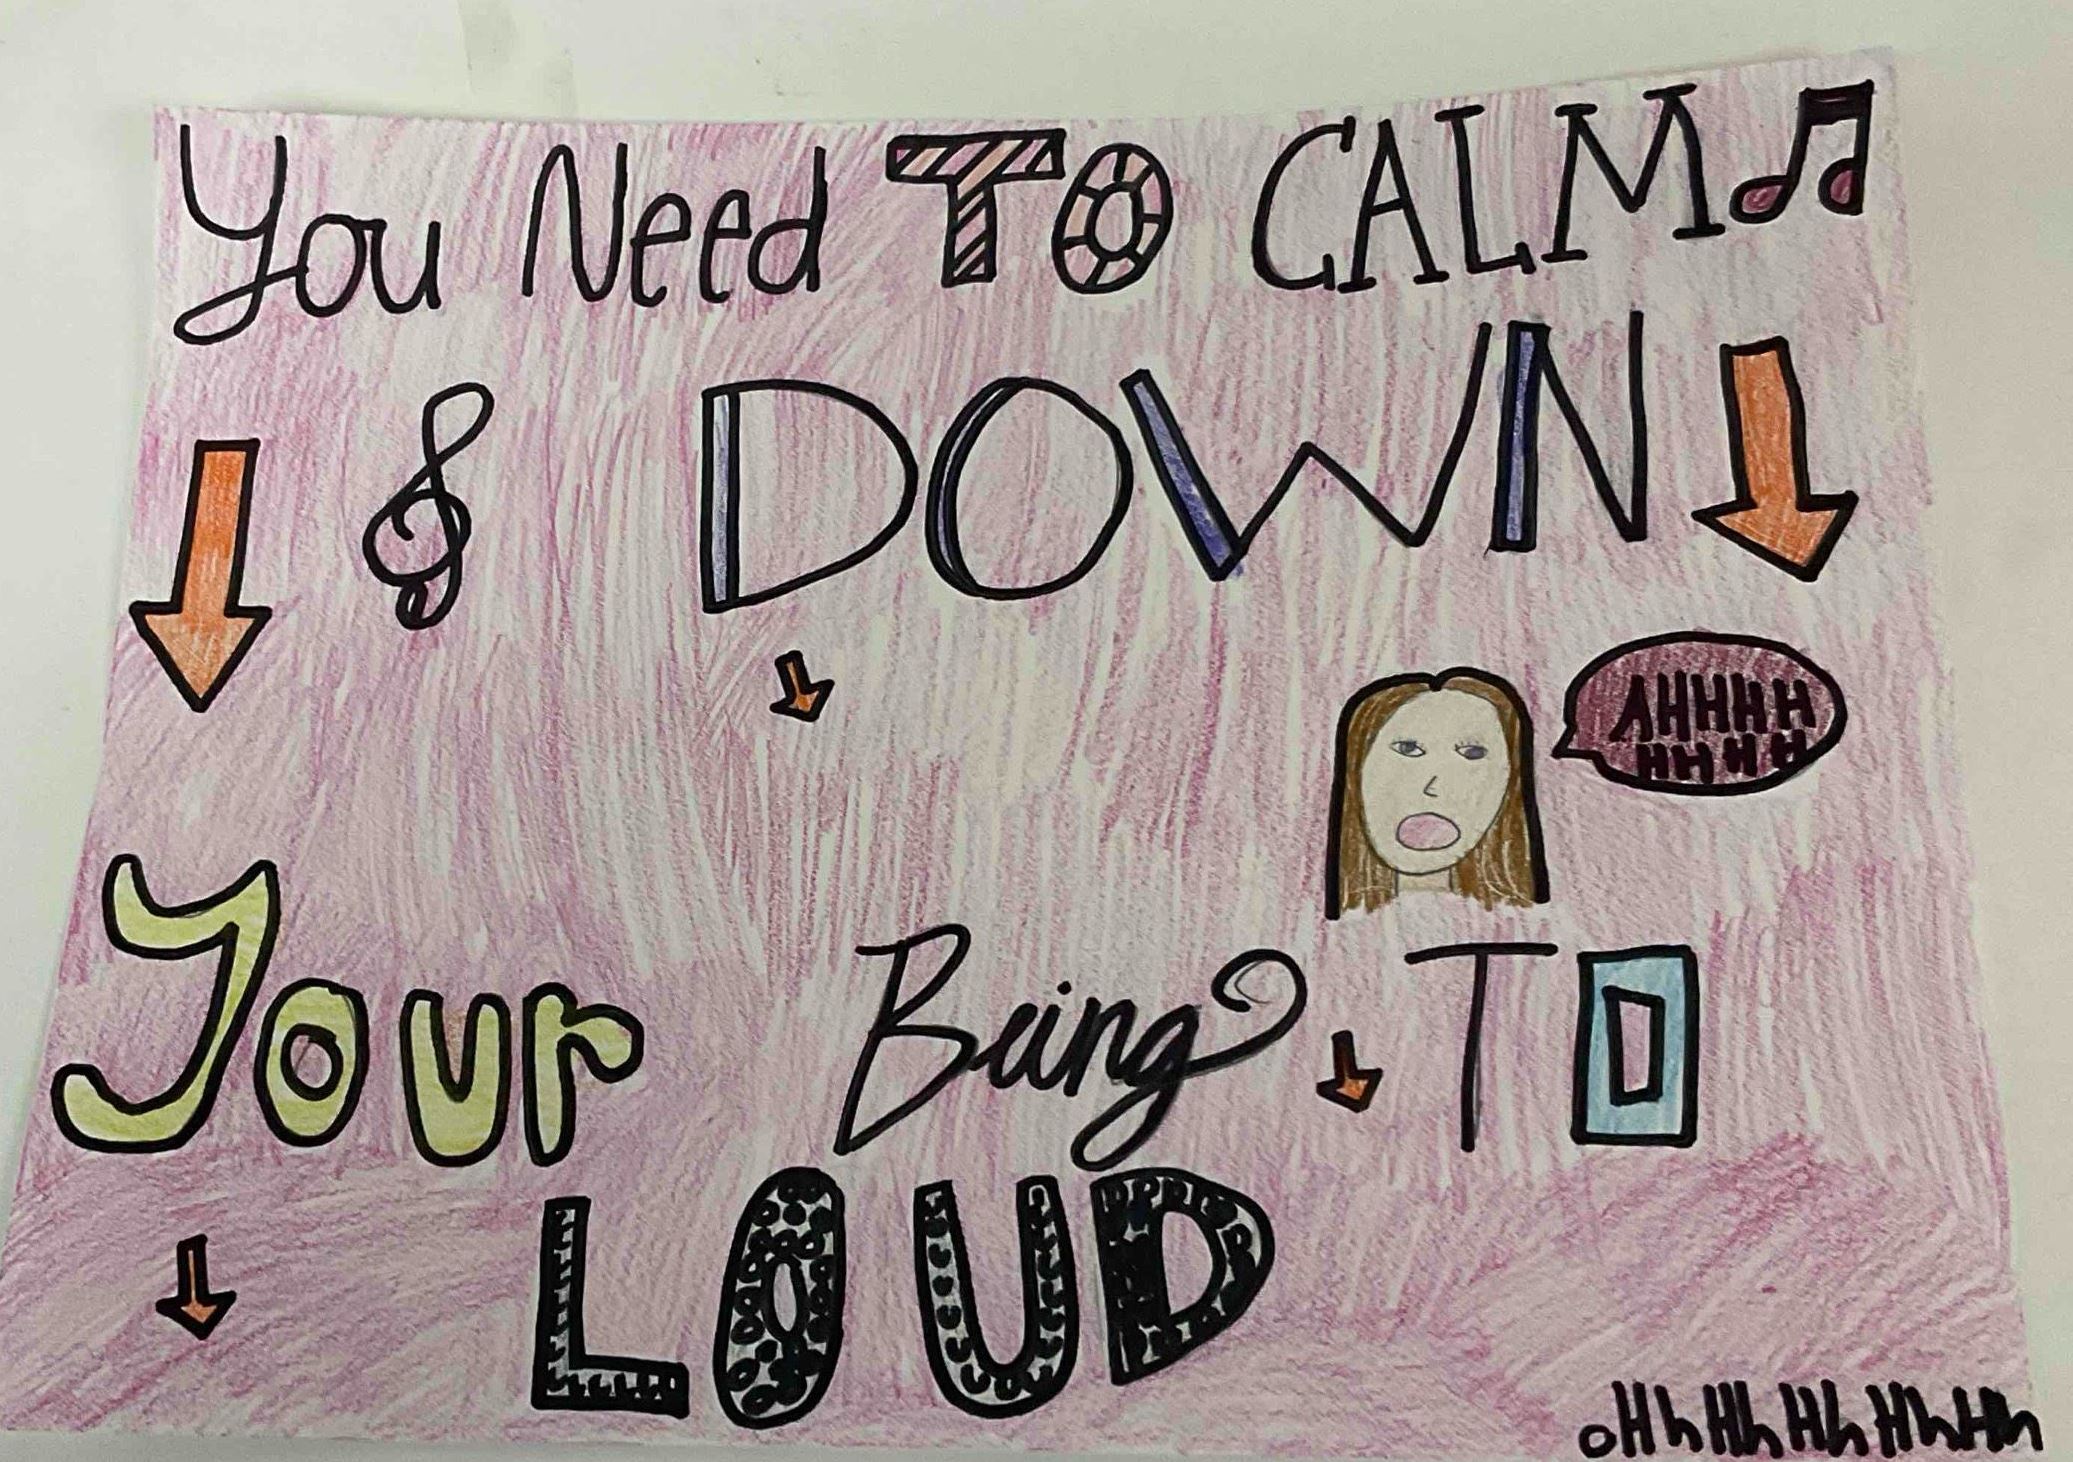 You Need TO CALM
DOWN
AHHHH
HHHH
Your Being TO
LOUD
oHhHhHhHhHh